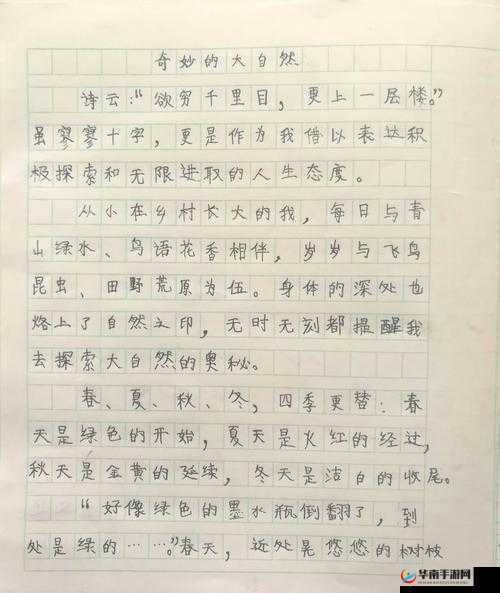 奇妙的大自然
诗云：“欲穷千里目，更上一层楼。”
虽寥寥十字，更是作为我借以表达积
极探索和无限进取的人生态度。
从小在乡村长大的我，每日与青
山绿水、鸟语花香相伴，岁岁与飞鸟
昆虫、田野荒原为伍。身体的深处也
烙上了自然之印，无时无刻都提醒我
去探索大自然的奥秘。
春、夏、秋、冬，四季更替：春
天是绿色的开始，夏天是火红的经过，
秋天是金黄的延续，冬天是洁白的收尾。
“好像绿色的墨水瓶倒翻了，到
处是绿的……。”春天，近处晃悠悠的树枝
华南手游网